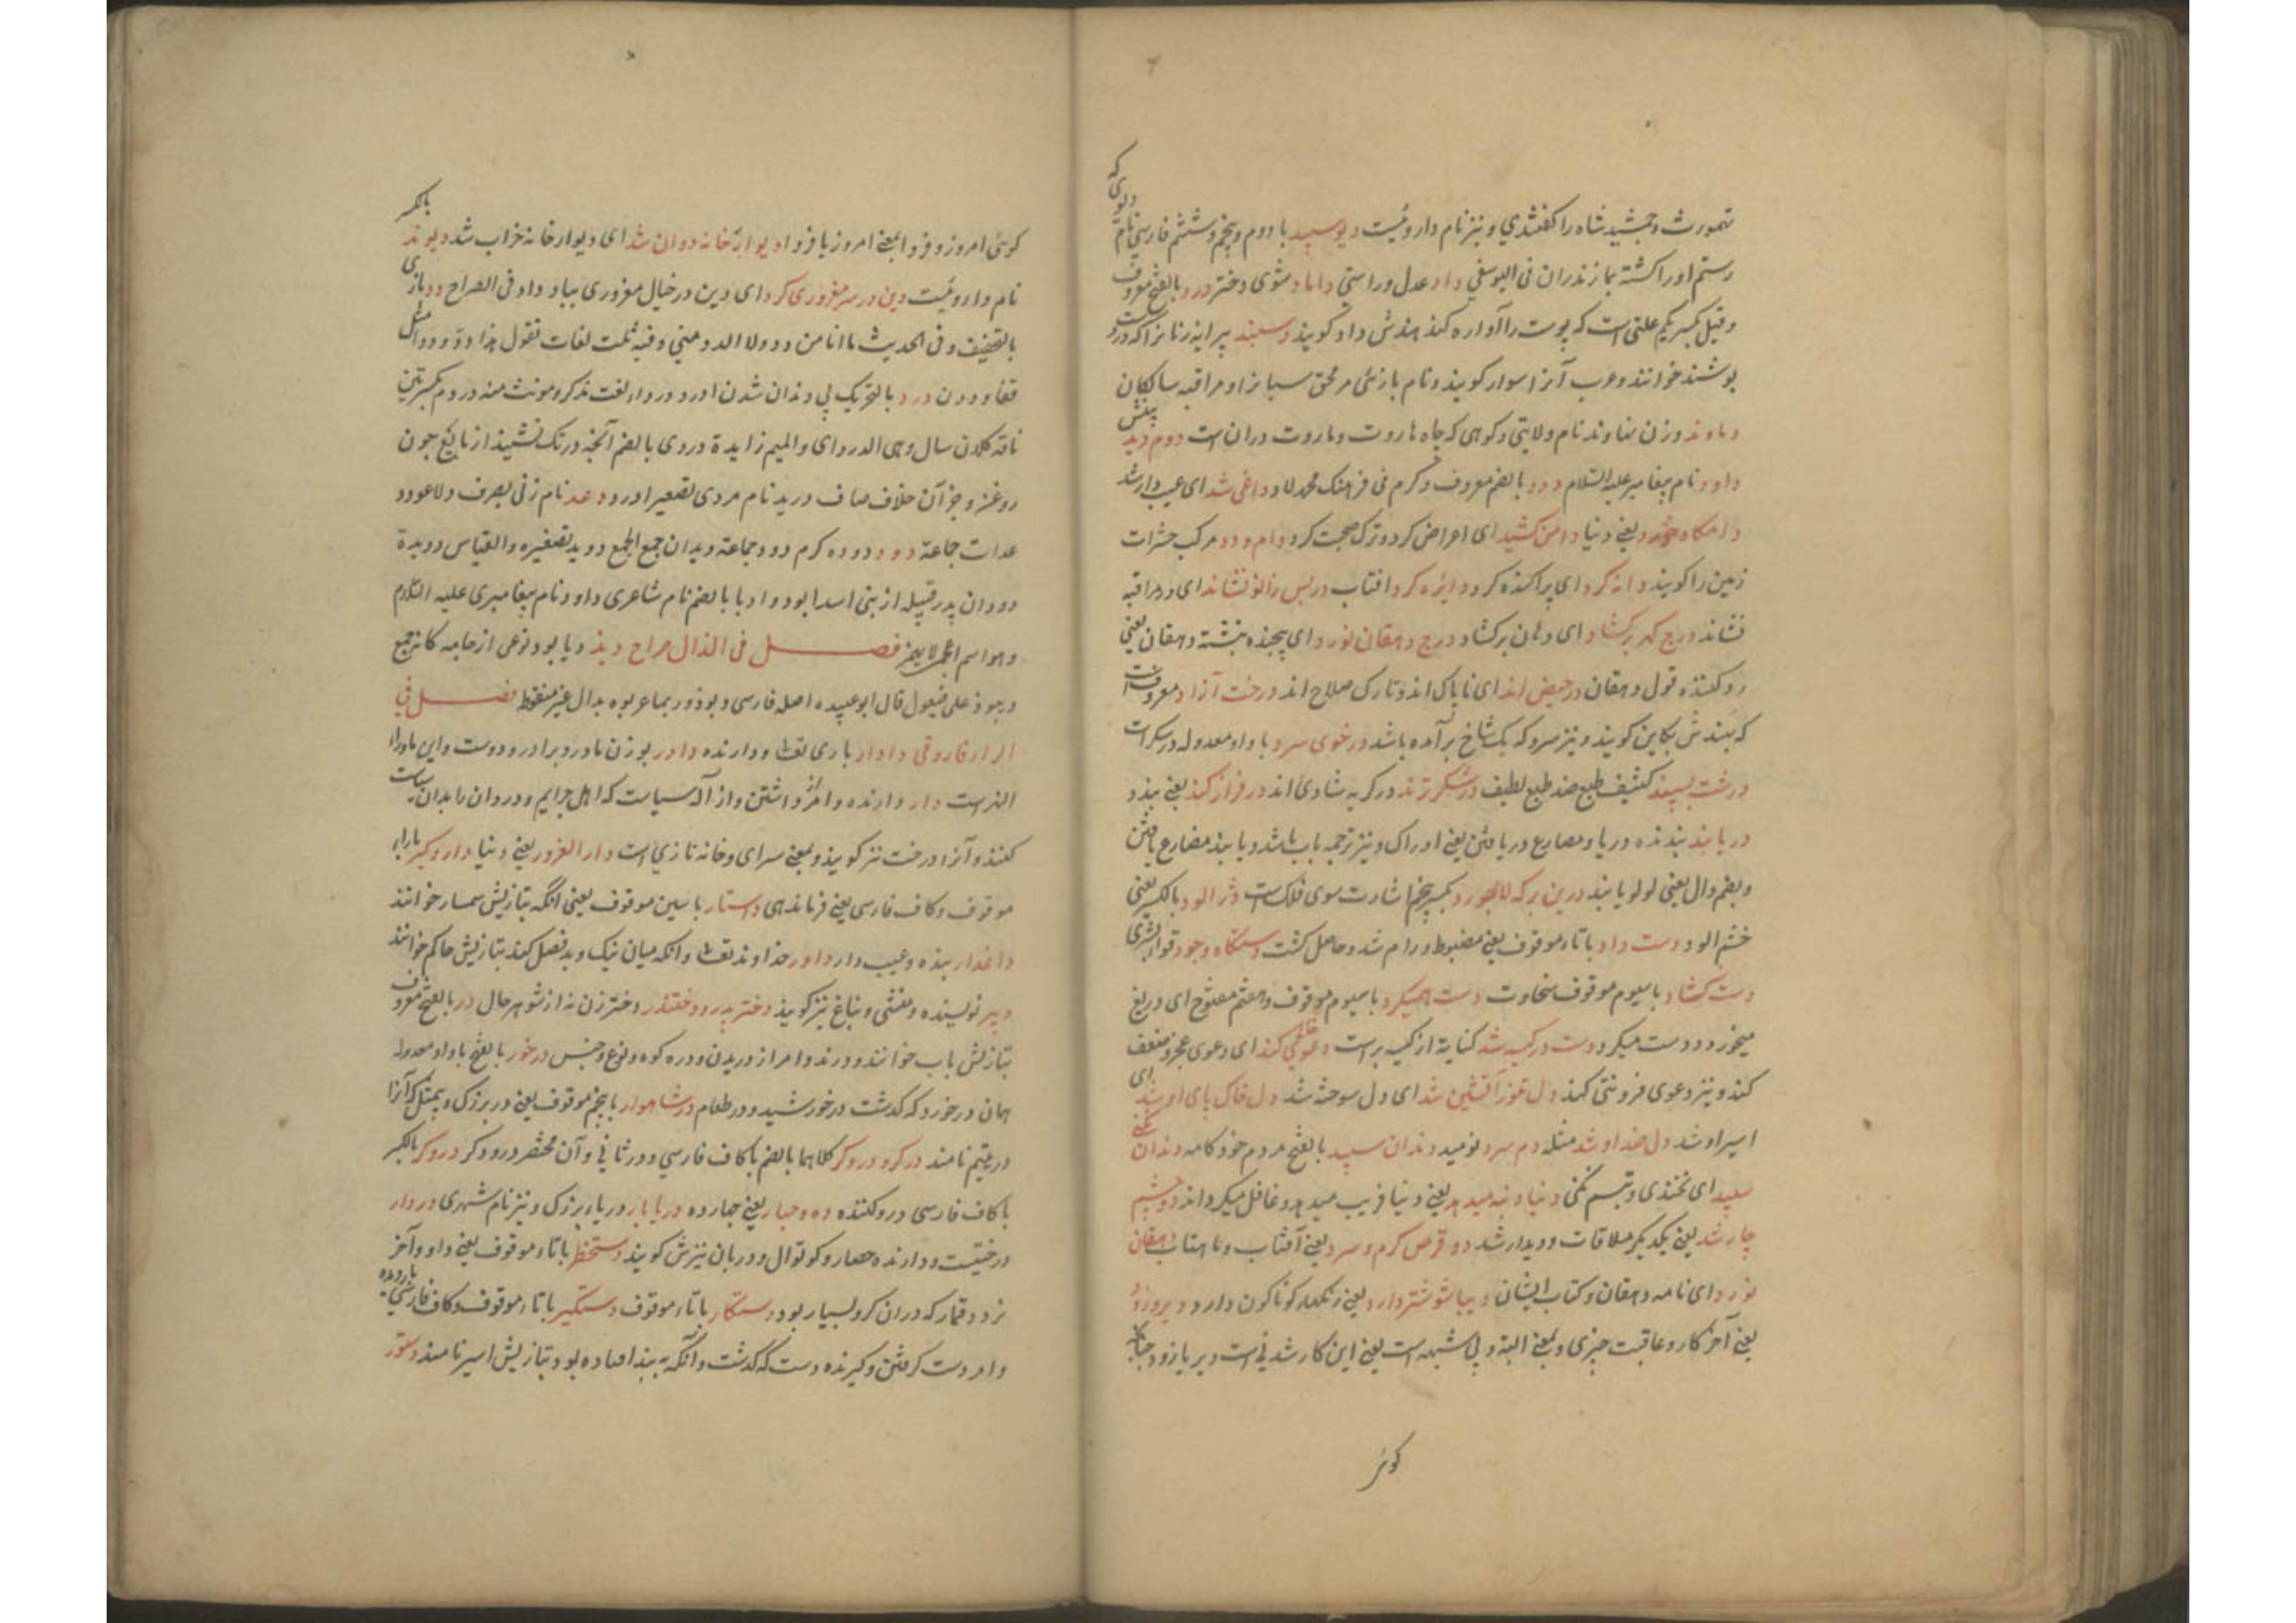 تهمورث و جمشید شاه را کفتندی و نیز نام داروئیست دیوسپید با دوم و پنجم و ششم فارسی نام دیوی که
رستم او را کشته بمازندران فی الیوسفی داد عدل و راستی داماد شوی دختر درد بالفتح معروف
و قیل بکسر یکم علتی است که پوست را آواره کند هندش داد کویند دستبند پیرایه زنانرا که در دست
پوشند خوانند و عرب آنرا سوار کویند و نام بازئی مر محق سبابرا و مراقبه سالکان
دماوند وزن نهاوند نام ولایتی و کوهی که چاه هاروت و ماروت دران است دوم دید بینش
داود نام پیغامبر علیه السلام دود بالضم معروف و کرم فی فرهنک محمد لاد داغی شد ای عیب دار شد
دامکاه خود یعنی دنیا دامن کشید ای اعراض کرد و ترک صحبت کرد دام و دد مرکب حشرات
زمین را کویند دانه کرد ای پراکنده کرد دایره کرد افتاب در پس زانو نشاند ای در مراقبه
نشاند درج کهر برکشاد ای دهن برکشاد درج دهقان نورد ای پیچنده نبشته دهقان یعنی
رد کننده قول دهقان در حیض اند ای ناپاک اند و تارک صلاح اند درخت آزاد معروفست
که هندش بکاین کویند و نیز سرو که یک شاخ برآمده باشد درخوی سرد با واو معدوله در سکرات
درشت پسند کثیف طبع ضد طبع لطیف در شکر زند در کریه شادی اند در فراز کند یعنی ببندد
دریابد بنده دریا و مضارع دریافتن یعنی ادراک و نیز ترجمه باب باشد و یابند مضارع یافتن
و بضم دال یعنی لولو یابند درین برکه لاجورد بکسر پنجم اشارت سوی فلکست دژالود بالکسر یعنی
خشم الود دست داد با تاء موقوف یعنی مضبوط و رام شد و حاصل کشت دستکاه وجود قواء بشری
دست کشاد با سیوم موقوف سخاوت دست همیکرد با سیوم موقوف و هفتم مفتوح ای دریغ
میخورد و دست میکرد دست در کیسه شد کنایة از کیسه بر است دعوی کند ای دعوی عجز و ضعف
کند و نیز دعوی فروتنی کند دل تنور آتشین شد ای دل سوخته شد دل خاک پای او شد ای
اسیر او شد دل ضد او شد مثله دم سرد نومید دندان سپید بالفتح مردم خود کامه دندان نکنی
سپید ای نخندی و تبسم نکنی دنیا دنبه میدهد یعنی دنیا فریب میدهد و غافل میکرداند دو چشم
چار شد یعنی بیکدیکر ملاقات و دیدار شد دو قرص کرم و سرد یعنی آفتاب و ماهتاب دهقان
نورد ای نامه دهقان و کتاب ایشان دیبا شوشتر دارد یعنی زنکهاء کوناکون دارد دیر و زود
یعنی آخر کار و عاقبت چیزی و بمعنی البته و بی شبهه است یعنی این کار شدنی است دیر یا زود چنانکه
کوئی
کوئی امروز و فردا بمعنی امروز یا فردا دیوار خانه دوان شد ای دیوار خانه خراب شد دیوند بالکسر
نام داروئیست دین در سر مغروری کرد ای دین در خیال مغروری بباد داد فی الصراح دد بازی
بالتخفیف و فی الحدیث ما انا من دد ولا الدد منی و فیه ثلث لغات تقول هذا دد و ددا مثل
قفا و ددن درد بالتحریک بی دندان شدن ادرد درداء لغت مذکر و مونث منه دردم بکسرتین
ناقه کلان سال و هی الدرداء و المیم زایدة دردی بالضم آنچه در تک نشیند از مایع چون
روغن و جز آن خلاف صاف درید نام مردی تصغیر ادرد دعد نام زنی یصرف و لا دعود
عدات جماعة دود دوده کرم دود جماعة دیدان جمع الجمع دوید تصغیره و القیاس دویدة
دودان پدر قبیله از بنی اسد ابو دواد بالضم نام شاعری داود نام پیغامبری علیه السلام
و هو اسم اعجمی لا یهمز فصل فی الذال صراح دیبذ دیابوذ نوعی از جامه کانه جمع
دیبوذ علی فیعول قال ابو عبیده اصله فارسی دوبوذ و ربما عربوه بدال غیر منقوطه فصل فی
الراء فاروقی دادار باری تعالی و دارنده دادر بوزن مادر برادر و دوست و این ماوراء
النهریست دار دارنده و امر از داشتن و از آله سیاست که اهل جرایم و دزدان را بدان سیاست
کنند و آنرا درخت نیز کویند و بمعنی سرای و خانه تازی است دار الغرور یعنی دنیا دار و کیر با راء
موقوف و کاف فارسی یعنی فرماندهی دستار با سین موقوف یعنی انکه بتازیش سمسار خوانند
داغدار بنده و عیب دار داور خداوند تعالی و انکه میان نیک و بد فصل کند بتازیش حاکم خوانند
دبیر نویسنده و منشی و نباغ نیز کویند دختر پدر و دختندر دختر زن نه از شوهر حال در بالفتح معروف
بتازیش باب خوانند و درنده و امر از دریدن و دره کوه و نوع و جنس درخور بالفتح با واو معدوله
همان درخورد که کدشت در خورشید و در طعام درشاهوار با پنجم موقوف یعنی در بزرک و بیمثل که آنرا
در یتیم نامند درکر و درودکر کلاهما بالضم با کاف فارسی و در ثانی و آن مختصر درودکر دروکر بالکسر
با کاف فارسی درو کننده ده و چهار یعنی چهارده دریابار دریاء بزرک و نیز نام شهری دزدار
در حقیقت و دارنده حصار و کوتوال و دربان نیزش کویند دستخط با تاء موقوف یعنی داو آخر
نرد و قمار که دران کرو بسیار بود دستکار با تاء موقوف دستکیر با تاء موقوف و کاف فارسی
و امر دست کرفتن و کیرنده دست که کدشت و آنکه به بند افتاده بود بتازیش اسیر نامند دستور